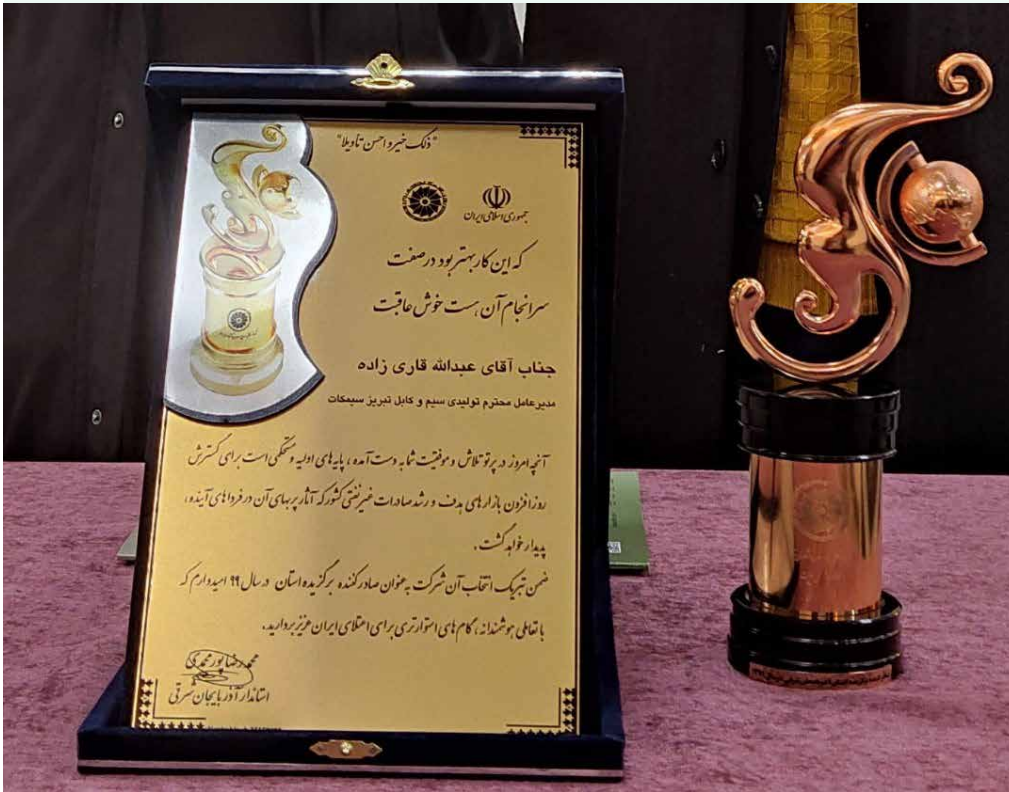 "ذلک خیر و احسن تأویلا"
جمهوری اسلامی ایران
که این کار بهتر بود در صفت
سرانجام آن هست خوش عاقبت
جناب آقای عبدالله قاری زاده
مدیرعامل محترم تولیدی سیم و کابل تبریز سیمکات
آنچه امروز در پرتو تلاش و موفقیت شما به دست آمده ، پایه های اولیه و مستحکمی است برای گسترش
روزافزون بازارهای هدف و رشد صادرات غیرنفتی کشور که آثار پربهای آن در فرداهای آینده ،
پدیدار خواهد گشت .
ضمن تبریک انتخاب آن شرکت به عنوان صادرکننده برگزیده استان در سال ۹۹ امیددارم که
با تعاملی هوشمندانه ، گام های استوارتری برای اعتلای ایران عزیز بردارید .
محمدرضا پورمحمدی
استاندار آذربایجان شرقی